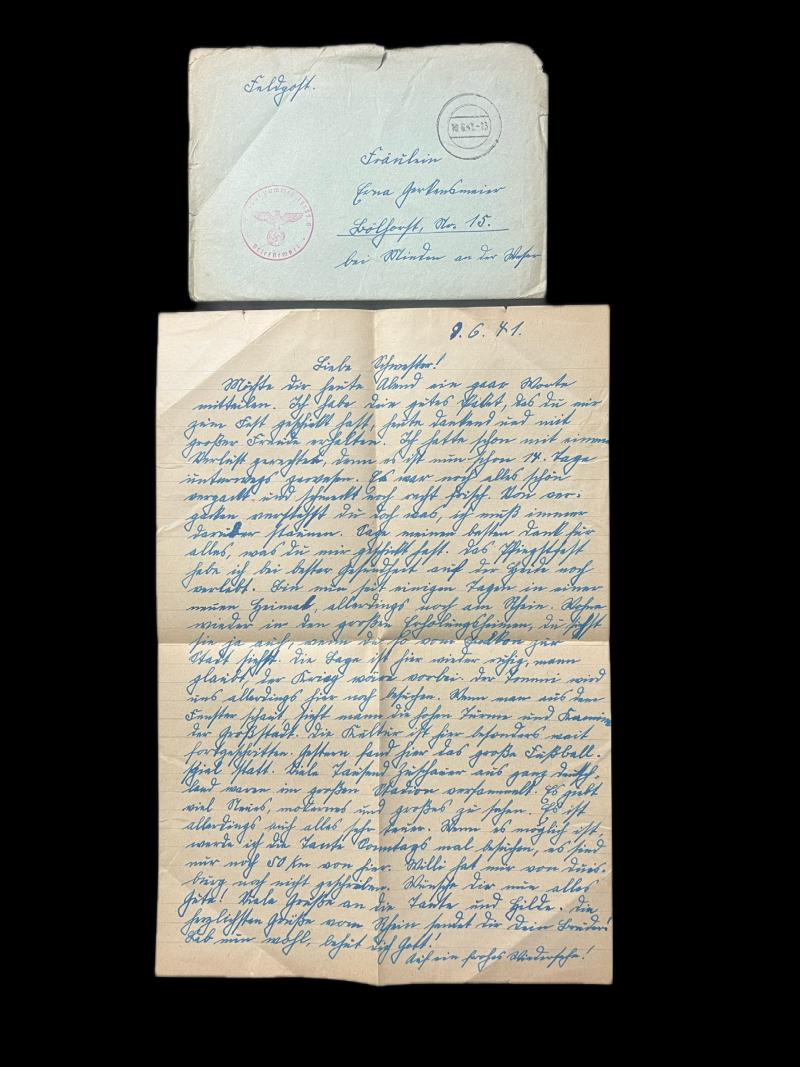 Feldpost.
10.6.41.-13
Fräulein
Erna Gerkensmeier
Bölhorst, Nr. 15.
bei Minden an der Weser
Briefstempel
9.6.41.
Liebe Schwester!
Möchte dir heute Abend ein paar Worte
mitteilen. Ich habe dein gutes Paket, das du mir
zum Fest geschickt hast, heute dankend und mit
großer Freude erhalten. Ich hatte schon mit einem
Verlust gerechtet, denn es ist nun schon 14. Tage
unterwegs gewesen. Es war noch alles schön
verpackt und schmeckt noch recht frisch. Von ver-
packen verstehst du doch was, ich muß immer
darüber staunen. Sage meinen besten Dank für
alles, was du mir geschickt hast. Das Pfingstfest
habe ich bei bester Gesundheit auf der Heide noch
verlebt. Bin nun seit einigen Tagen in einer
neuen Heimat, allerdings noch am Rhein. Wohne
wieder in den großen Erholungsheimen, du siehst
sie ja auch, wenn du so vom Balkon zur
Stadt siehst. Die Lage ist hier wieder ruhig, mann
glaubt, der Krieg wäre vorbei. Der Tommi wird
uns allerdings hier noch besuchen. Wenn man aus dem
Fenster schaut, sieht mann die hohen Türme und Kamine
der Großstadt. Die Kultur ist hier besonders weit
fortgeschritten. Gestern fand hier das große Fußball-
spiel statt. Viele Tausend Zuschauer aus ganz Deutsch-
land waren im großen Stadion versammelt. Es giebt
viel Neues, modernes und großes zu sehen. Es ist
allerdings auch alles sehr teuer. Wenn es möglich ist
werde ich die Tante Sonntags mal besuchen, es sind
nur noch 50 km von hier. Willi hat mir von Duis-
burg noch nicht geschrieben. Wünsche dir nun alles
Gute! Viele Grüße an die Tante und Hilde. Die
herzlichsten Grüße vom Rhein sendet dir dein Bruder!
Leb nun wohl, behüt dich Gott!
Auf ein frohes Wiedersehn!